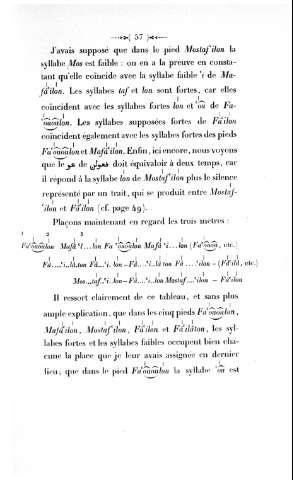 ( 57 )
J'avais supposé que dans le pied Mostaf'ilon la
syllabe Mos est faible : on en a la preuve en consta-
tant qu'elle coïncide avec la syllabe faible 'i de Ma-
fâ'ilon. Les syllabes taf et lon sont fortes, car elles
coïncident avec les syllabes fortes lon et 'oû de Fa-
'oûoûlon. Les syllabes supposées fortes de Fâ'ilon
coïncident également avec les syllabes fortes des pieds
Fa'oûoûlon et Mafâ'ilon. Enfin, ici encore, nous voyons
que le عو de فعولن doit équivaloir à deux temps, car
il répond à la syllabe lon de Mostaf'ilon plus le silence
représenté par un trait, qui se produit entre Mostaf-
'ilon et Fâ'ilon (cf. page 49).
Plaçons maintenant en regard les trois mètres :
1 2 3
Fa'oûoûlon Mafâ'i...lon Fa'oûoûlon Mafâ'i...lon (Fa'oûoû, etc.)
Fâ....'i..lâ.ton Fâ...'i..lon – Fâ...'i..lâ ton Fâ....'ilon – (Fâ'ilâ, etc.)
Mos...taf.'i.lon – Fâ...'i..lon Mostaf...'ilon – Fâ'ilon
Il ressort clairement de ce tableau, et sans plus
ample explication, que dans les cinq pieds Fa'oûoûlon,
Mafâ'ilon, Mostaf'ilon, Fâ'ilon et Fâ'ilâton, les syl-
labes fortes et les syllabes faibles occupent bien cha-
cune la place que je leur avais assignée en dernier
lieu; que dans le pied Fa'oûoûlon la syllabe 'oû est